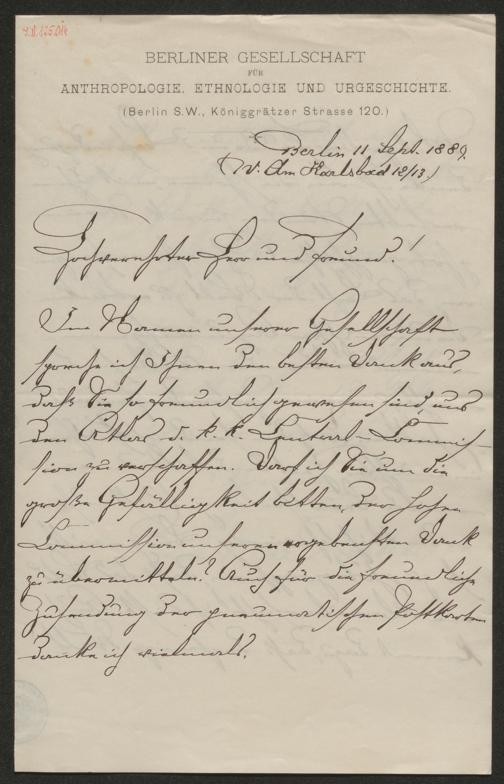 BERLINER GESELLSCHAFT
FÜR
ANTHROPOLOGIE, ETHNOLOGIE UND URGESCHICHTE.
(Berlin S.W., Königgrätzer Strasse 120.)
Berlin 11 Sept. 1889.
(W. Am Karlsbad 12/13.)
Hochverehrter Herr und Freund!
Im Namen unserer Gesellschaft
spreche ich Ihnen den besten Dank aus,
daß Sie so freundlich gewesen sind, uns
den Atlas d. k. k. Central-Commis-
sion zu verschaffen. Darf ich Sie um die
große Gefälligkeit bitten, der hohen
Commission unseren ergebensten Dank
zu übermitteln? Auch für die freundliche
Zusendung der pneumatischen Postkarten
danke ich vielmals.